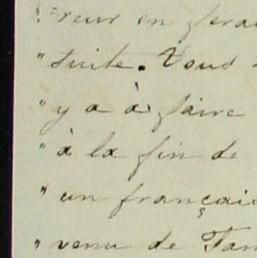 "reur en ferai
" suite. Vous
" y a à faire
" à la fin de
" un français
" venu de Tan